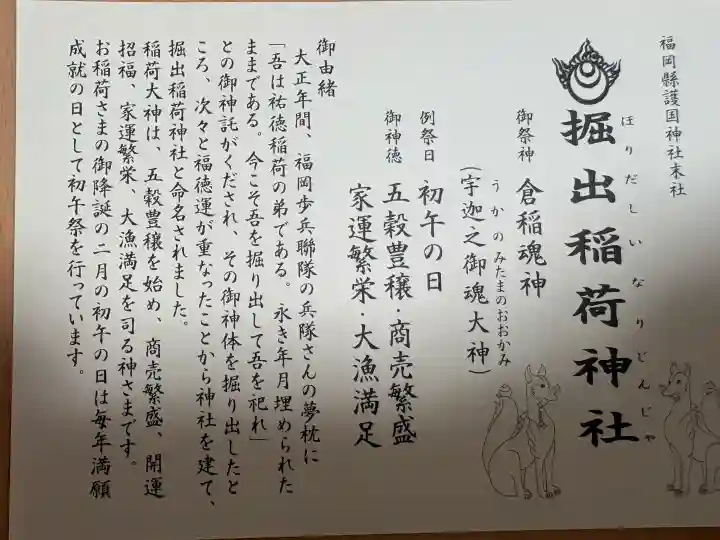 福岡縣護国神社末社
掘出稲荷神社
ほりだしいなりじんじゃ
御祭神 倉稲魂神
うかのみたまのおおかみ
(宇迦之御魂大神)
例祭日 初午の日
御神徳 五穀豊穣・商売繁盛
家運繁栄・大漁満足
御由緒
大正年間、福岡歩兵聯隊の兵隊さんの夢枕に
「吾は祐徳稲荷の弟である。永き年月埋められた
ままである。今こそ吾を掘り出して吾を祀れ」
との御神託がくだされ、その御神体を掘り出したと
ころ、次々と福徳運が重なったことから神社を建て、
掘出稲荷神社と命名されました。
稲荷大神は、五穀豊穣を始め、商売繁盛、開運
招福、家運繁栄、大漁満足を司る神さまです。
お稲荷さまの御降誕の二月の初午の日は毎年満願
成就の日として初午祭を行っています。